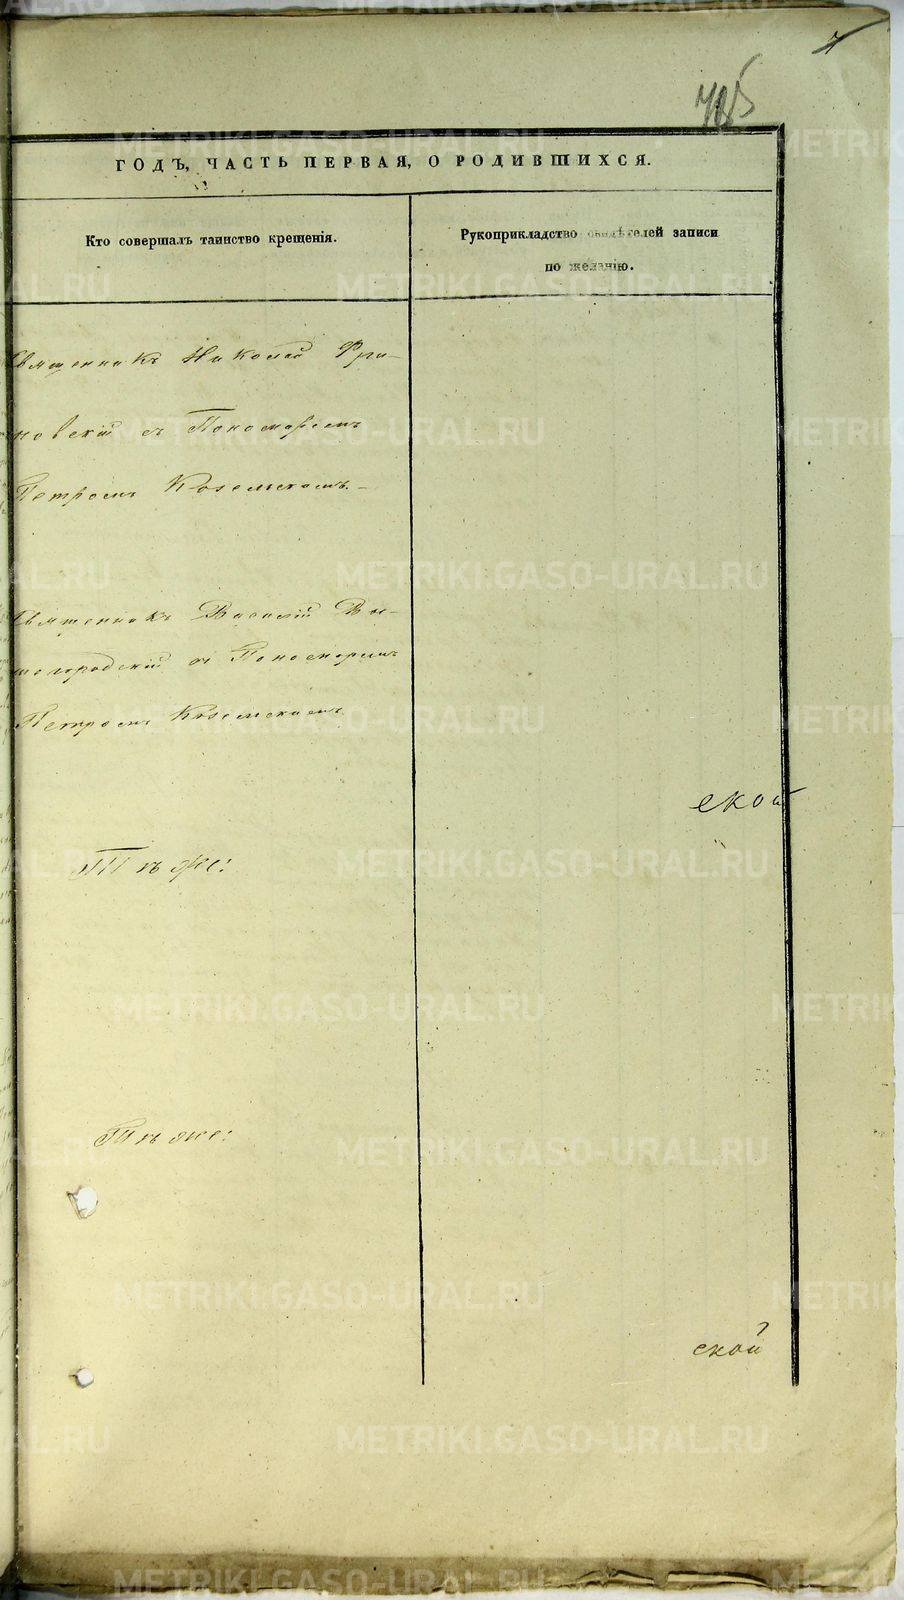 7
ГОДЪ, ЧАСТЬ ПЕРВАЯ, О РОДИВШИХСЯ.
Кто совершалъ таинство крещенія.
Рукоприкладство свидѣтелей записи
по желанію.
Священникъ Николай Фри-
новскій съ Пономаремъ
Петромъ Коземскимъ.
Священникъ Василій Вы-
шегородскій съ Пономаремъ
Петромъ Коземскимъ
ской
Тѣ же:
Тѣ же:
ской
METRIKI.GASO-URAL.RU